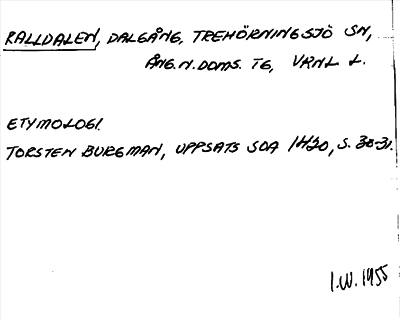 RALLDALEN, DALGÅNG, TREHÖRNINGSJÖ SN,
ÅNG.N.DOMS. TG, VRNL L.
ETYMOLOGI.
TORSTEN BURGMAN, UPPSATS SOA 1420, S. 30-31.
I.W. 1955